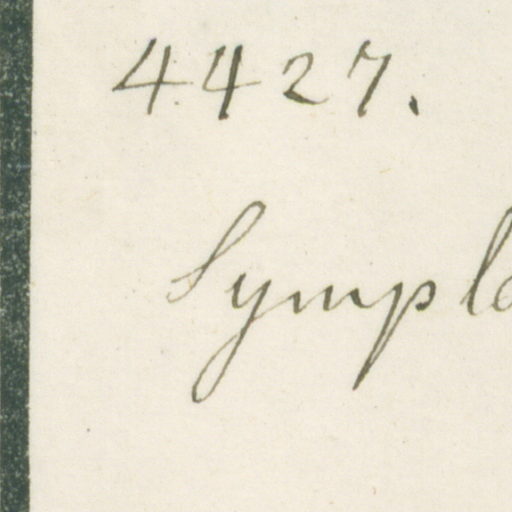 4427.
Symplo